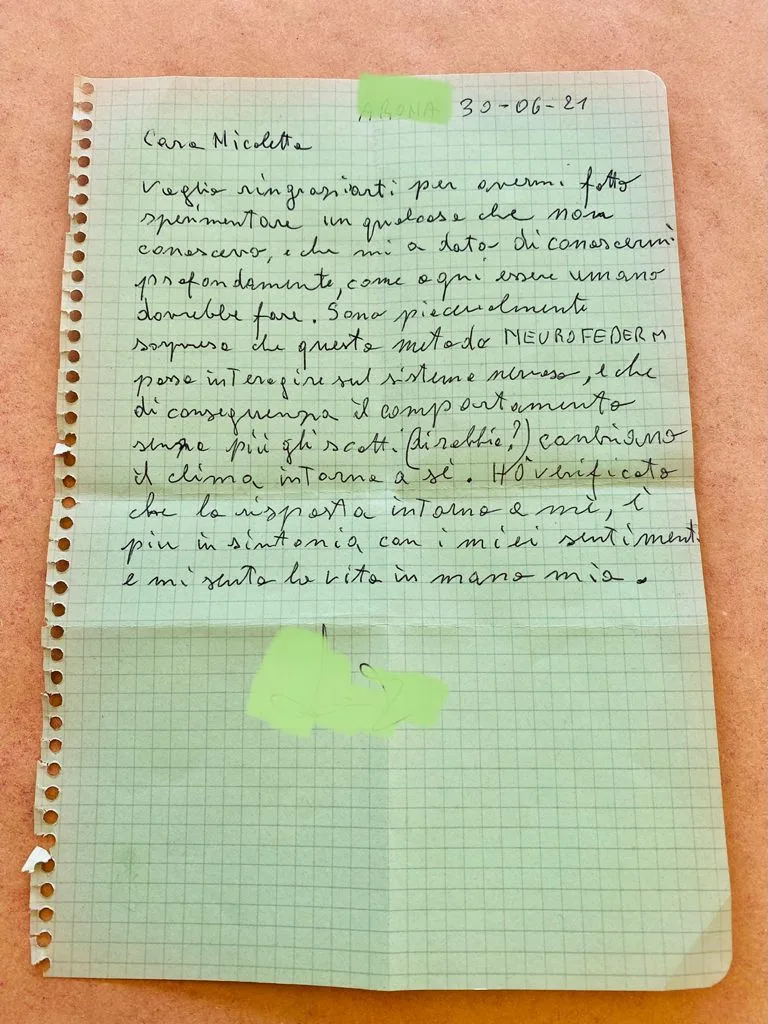 ARONA 30-06-21
Cara Nicoletta
Voglio ringraziarti per avermi fatto
sperimentare un qualcosa che non
conoscevo, e che mi a dato di conoscermi
profondamente, come ogni essere umano
dovrebbe fare. Sono piacevolmente
sorpresa che questo metodo NEUROFEDERM
possa interagire sul sistema nervoso, e che
di conseguenza il comportamento
senza più gli scatti (di rabbia?) cambiano
il clima intorno a sé. Hò verificato
che la risposta intorno a me, è
più in sintonia con i miei sentimenti
e mi sento la vita in mano mia.